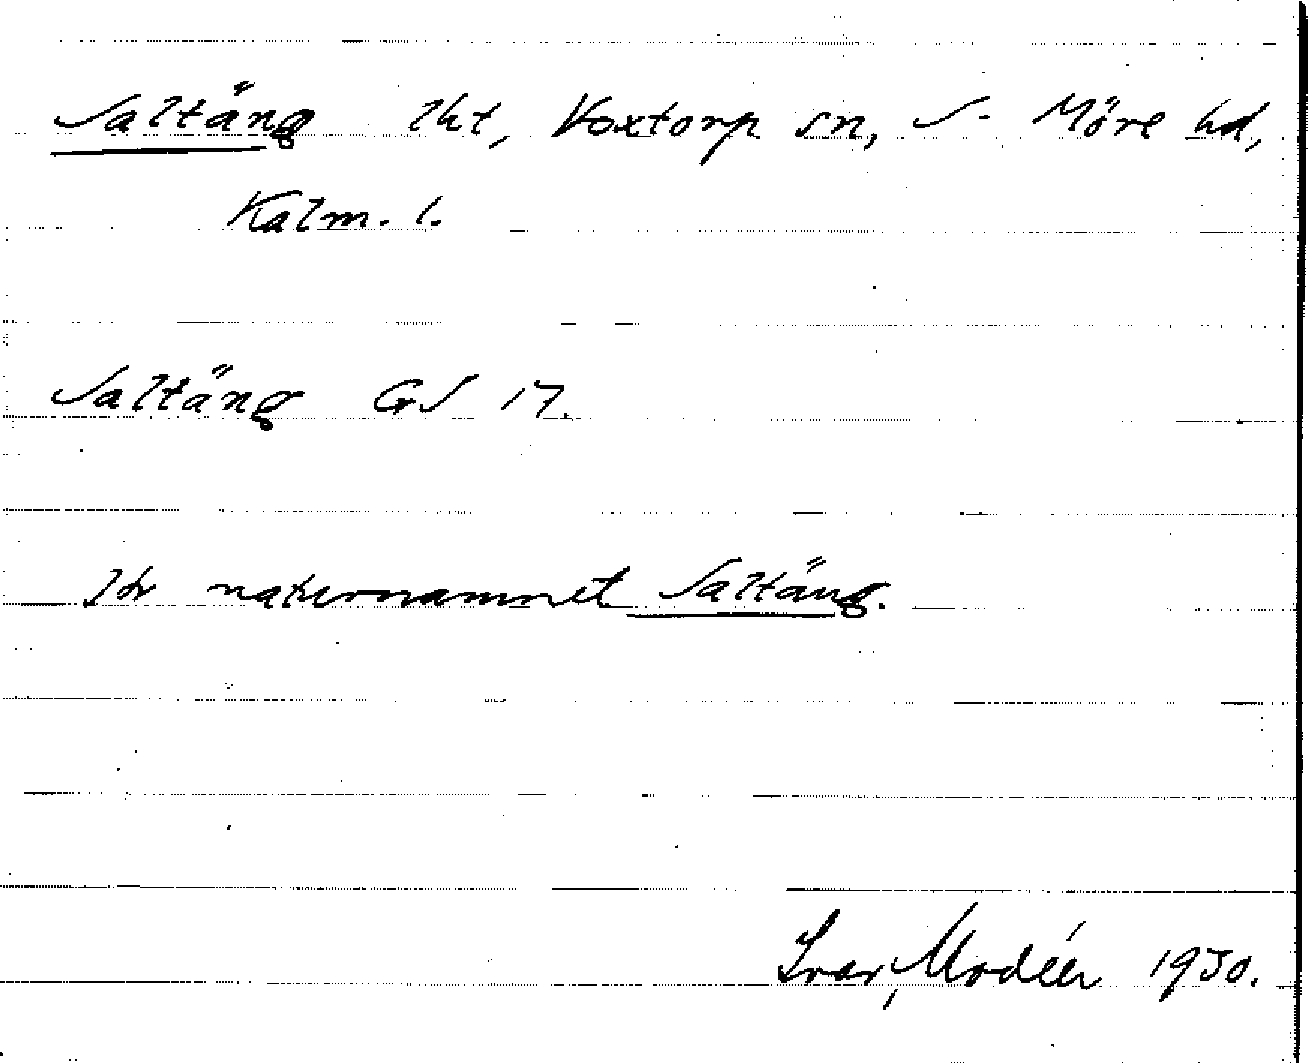 Saltäng lht, Voxtorp sn, S. Möre hd,
Kalm. l.
Saltäng GS 17.
Itr naturnamnet Saltäng.
Ivar Modéer 1930.